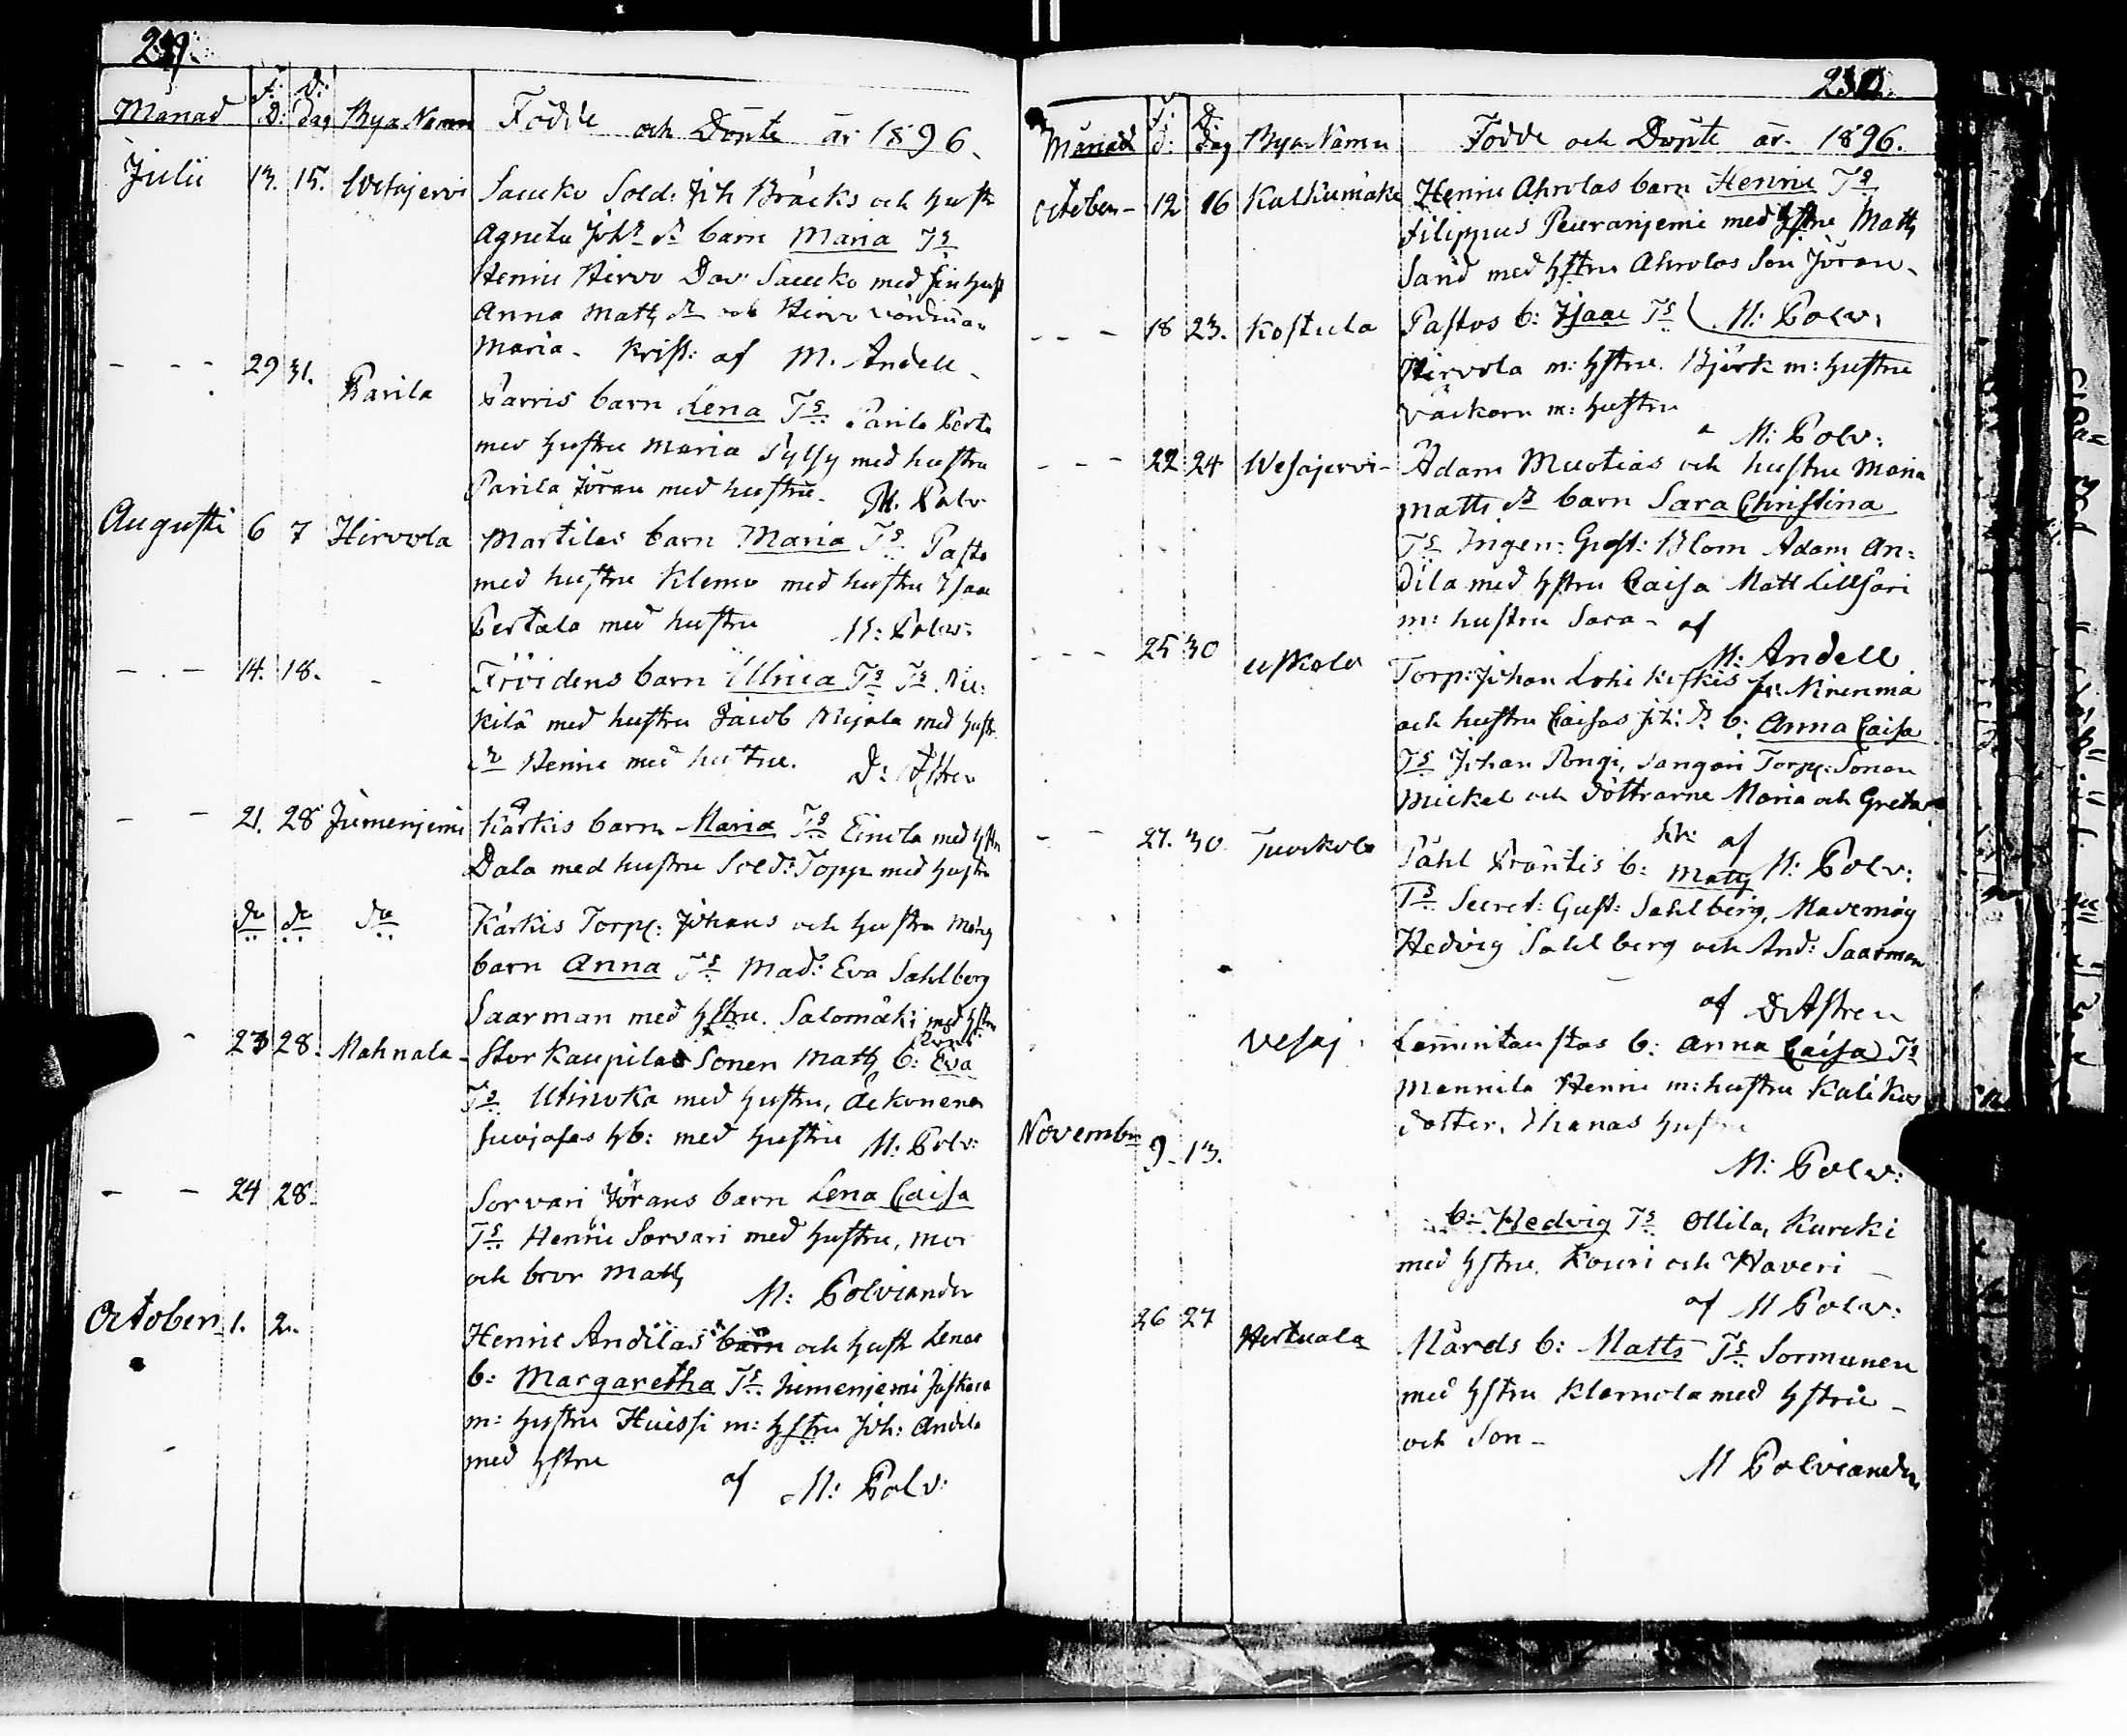 229.
Månad F: D: D: dag Bya Namn Födde och Döpte år 1896.
Julii 13. 15. Wesajervi Saucko Sold: Joh Bräcks och hustr
Agneta Joh: dr barn Maria Ts
Henric Hirvo Dav: Saucko med sin hust
Anna Matts dr och Hirvo
Maria. Krist: af M. Andell
- - - 29 31. Parila Parris barn Lena Ts Parila Pert
med hustru Maria Pylsy med hustru
Parila Jöran med hustru. M. Polv
Augusti 6 7 Hirvola Martilas barn Maria Ts Pasto
med hustru Klemo med hustru Isaac
Pertala med hustru M: Polv:
- - - 14. 18. - barn Ulrica Ts Ts
kilä med hustru Jacob med hust.
Henric med hustru. D: Astren
- - 21. 28 Jumenjemi Kärkis barn Maria Ts Einola med hstru
Dala med hustru Sold: Topp med hustru
do do do Kärkis Torp: Johans och hustru Marg
barn Anna Ts Mad: Eva Sahlberg
Saarman med hstru. Salomäki med hstru
- 23 28. Mahnala - Storkaupilas Sonen Matts b: Eva
Ts Uhinoka med hustru,
hb: med hustru M: Polv:
- - 24 28. Sorvari Jörans barn Lena Caisa
Ts Henric Sorvari med hustru, mor
och bror Matts M: Polviander
October 1. 2. Henric Andilas barn och hust Lenas
b: Margaretha Ts Jumenjemi Joskara
m: hustru Huissi m: hstru Joh: Andila
med hstru
af M: Polv:
230.
Månad F: d: D. dag Bya Namn Födde och Döpte år 1896.
October - 12 16 Kalkumäki Henric Ahrolas barn Henric Ts
Filippus Peuranjemi med hstru Matts
Sand med hstru Ahrolas Son Jöran
- - - 18 23. Kostula Pastos b: Isaac Ts M: Polv:
Hirvola m: hstru. Björk m: hustru
m: hustru
M: Polv:
- - - 22 24 Wesajervi - Adam Muotias och hustru Maria
Matts dr barn Sara Christina
Ts Ingen: Gust: Blom Adam An=
dila med hstru Caisa Matt Lillsari
m: hustru Sara - af
M: Andell
- - - 25 30 uskola Torp: Johan
och hustru Caisas Joh: dr b: Anna Caisa
Ts Johan Pongi, Sangari Torp: Sonen
Mickel och döttrarne Maria och Greta
Kr: af
- - 27. 30. Tuorkola Påhl Präntis b: Matts M: Polv:
Ts Secret: Gust: Sahlberg,
Hedvig Sahlberg och And: Saarman
af D Astren
Vesaj. b: Anna Caisa Ts
Mannila Henric m: hustru
dotter, hustru
M: Polv:
November 9. 13.
b: Hedvig Ts Ollila, Kurcki
med hstru, Kouri och Haveri
af M Polv:
26 27 Hertuala Mårds b: Matts Ts Sormunen
med hstru Klemola med hstru
och Son -
M Polviander